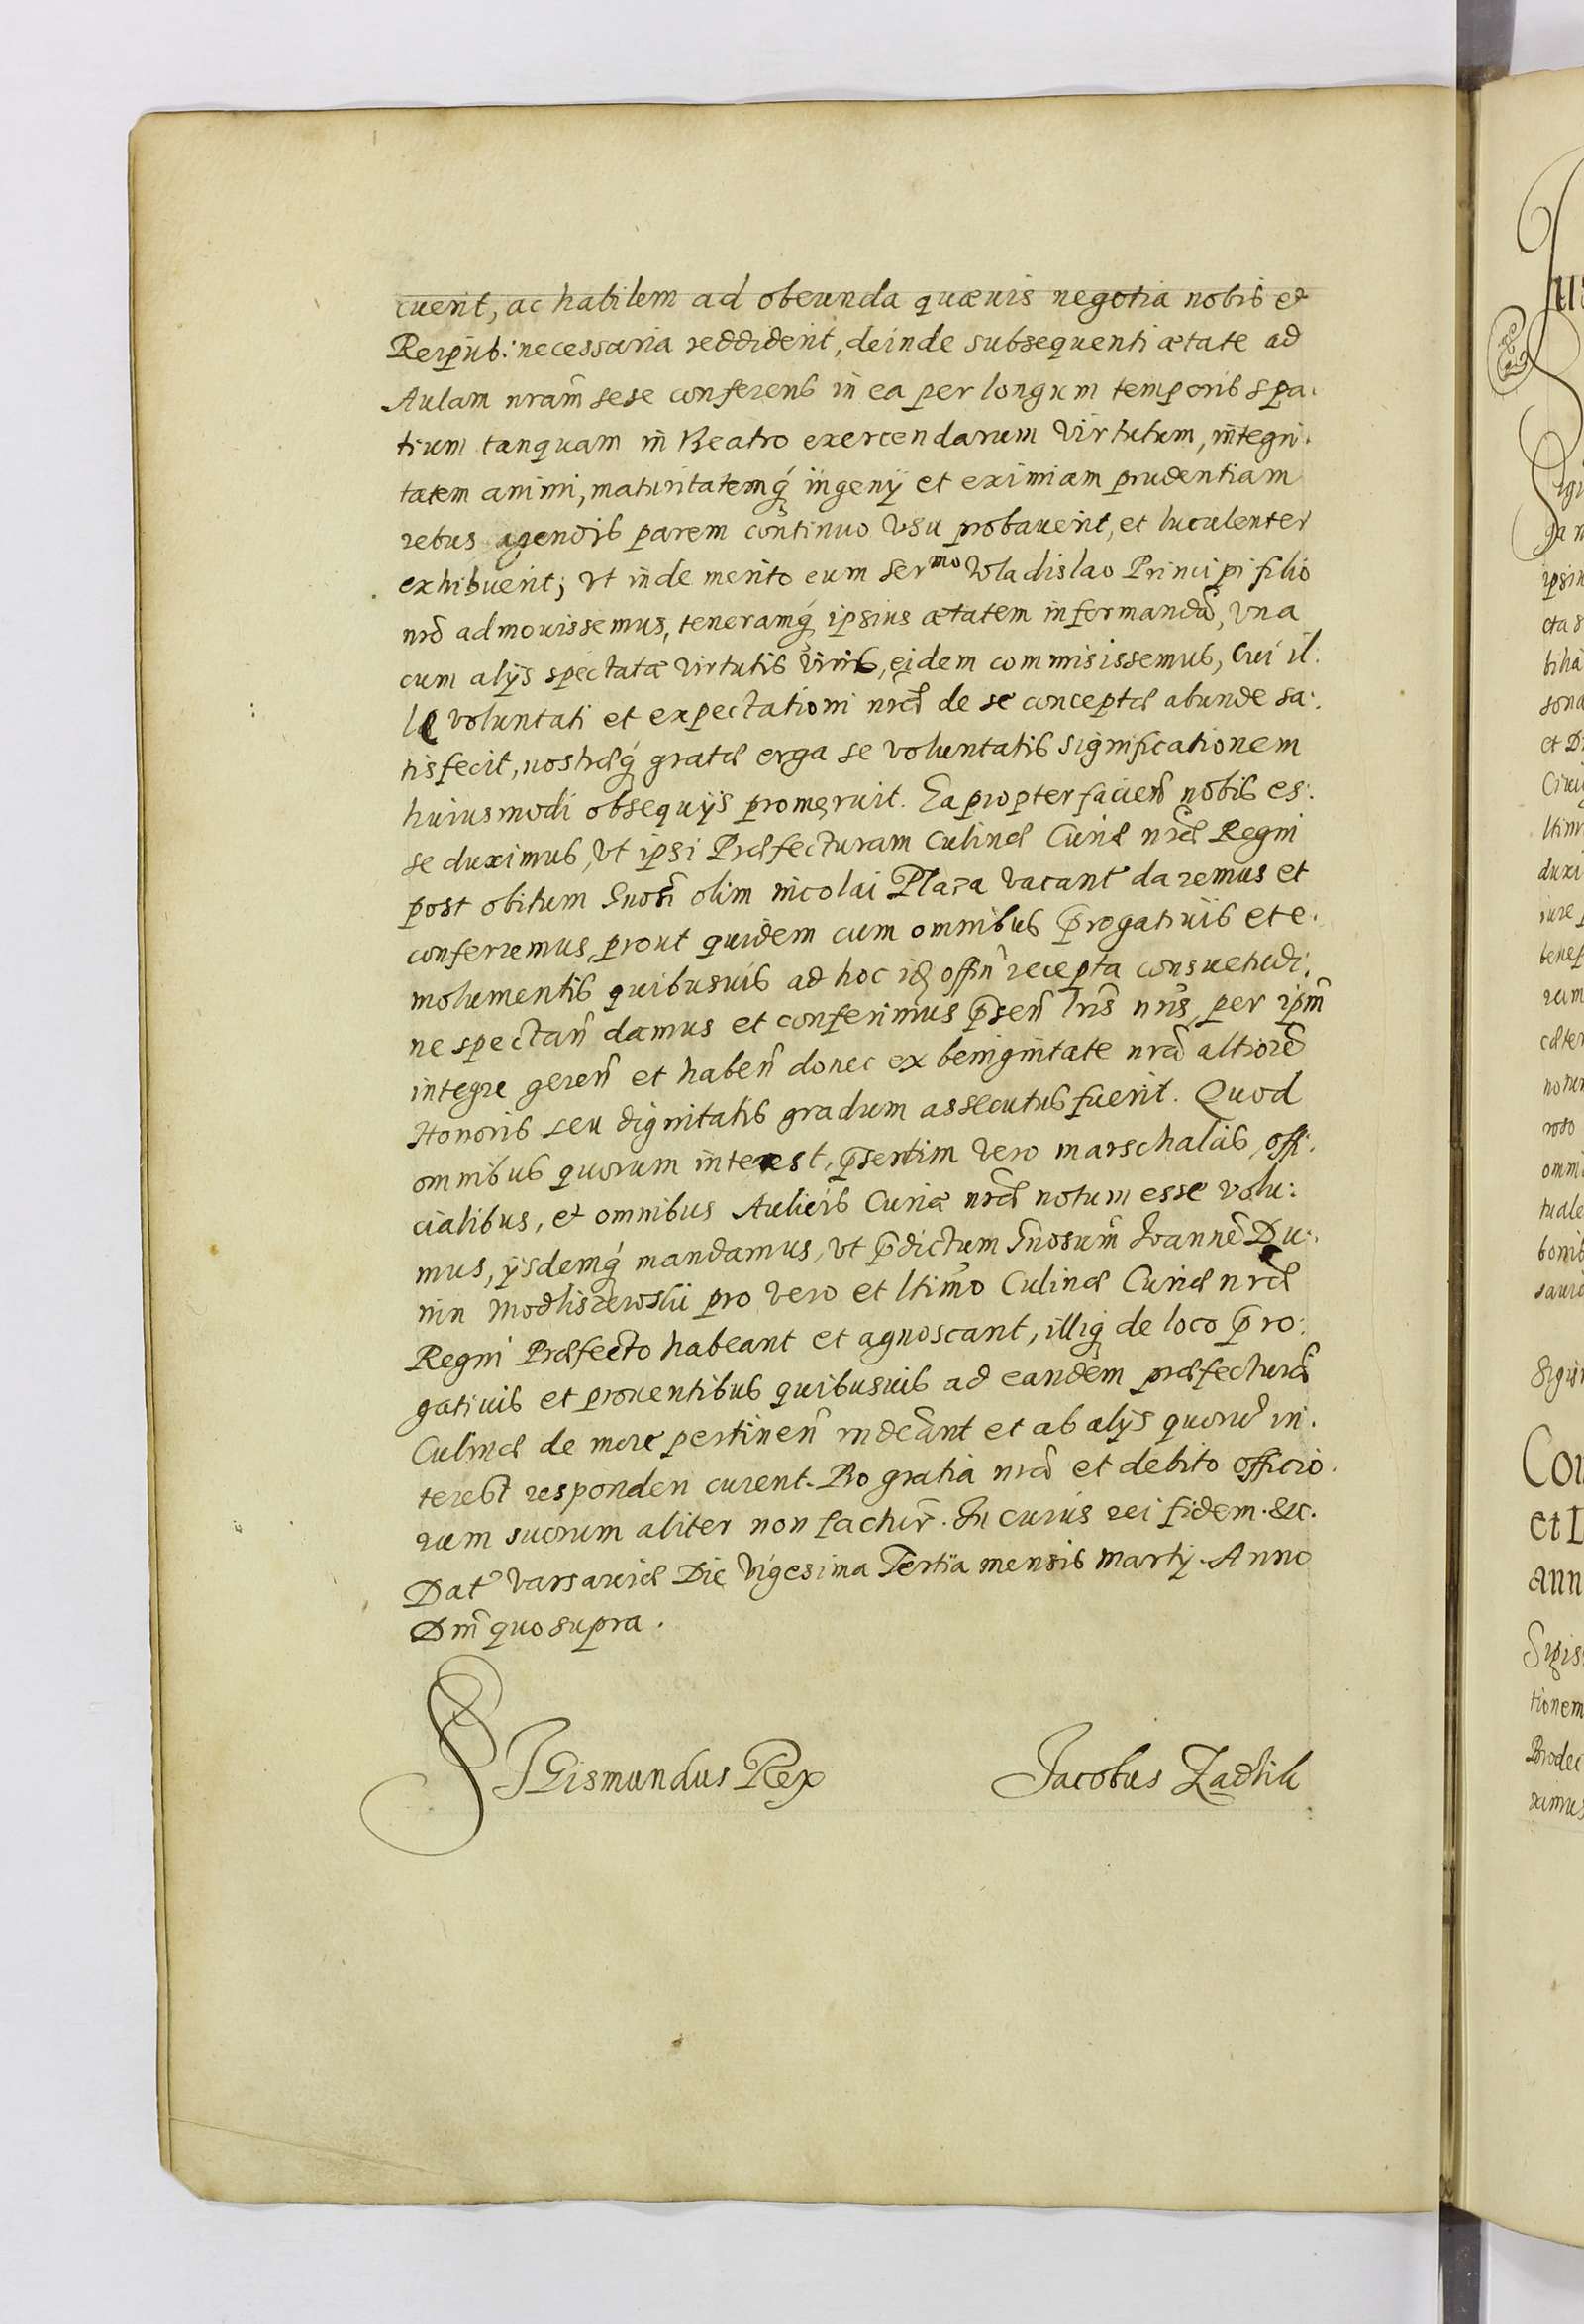 cuerit, ac habilem ad obeunda quæuis negotia nobis et
Reipub: necessaria reddiderit, deinde subsequenti ætate ad
Aulam nram̃ sese conferens in ea per longum temporis spa:
tium tanquam in theatro exercendarum virtutum, integri:
tatem animi, maturitatemq́ ingenÿ et eximiam prudentiam
rebus agendis parem continuo vsu probauerit, et luculenter
exhibuerit; vt inde merito eum Ser^mo Wladislao Principi filio
nrõ admouissemus, teneramq́ ipsius ætatem informandã, vna
cum alÿs spectatæ virtutis viris, eidem commisissemus, Cui il:
le voluntati et expectationi nræ̃ de se conceptæ abunde sa:
tisfecit, nostræq́ gratæ erga se voluntatis significationem
huiusmodi obsequÿs promeruit. Ea propter facien̄ nobis es:
se duximus, vt ipsi Præfecturam Culinæ Curiæ nræ̃ Regni
post obitum Gnosi̅ olim Nicolai Plaza vacant̃ daremus et
conferremus, prout quidem cum omnibus p̃rogatiuis et e:
molumentis quibusuis ad hoc id offin̄ recepta consuetudi:
ne spectan̄ damus et conferimus p̃sen̄ lris̃ nris̃, per ipm̃
integre geren̄ et haben̄ donec ex benignitate nrã altiorẽ
Honoris seu dignitatis gradum assecutus fuerit. Quod
omnibus quorum interest, p̃sertim vero marschalcis, offi:
cialibus, et omnibus Aulicis Curiæ nræ̃ notum esse volu:
mus, ÿsdemq́ mandamus, vt p̃dictum Gnosum̃ Ioannẽ Du:
nin Modliszewskii pro vero et ltimõ Culinæ Curiæ nræ̃
Regni Præfecto habeant et agnoscant, illiq́ de loco p̃ro:
gatiuis et prouentibus quibusuis ad eandem præfecturã
Culinæ de more pertinen̄ rndeãnt et ab alÿs quorũ in:
terest responderi curent. Pro gratia nrã et debito officio:
rum suorum aliter non factur̃. In cuius rei fidem. &c.
Dat̃ Varsauiæ Die Vigesima Tertia mensis Martÿ. Anno
Dni̅ quo supra.
Sigismundus Rex Jacobus Zadzik